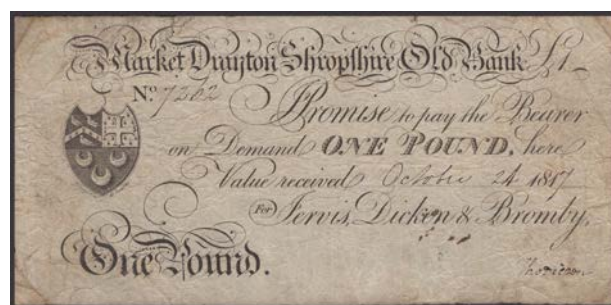 Market Drayton Shropshire Old Bank £1
No. 7362
Promise to pay the Bearer
on Demand ONE POUND, here
Value received October 24 1817
For Jervis, Dicken & Bromby,
One Pound.